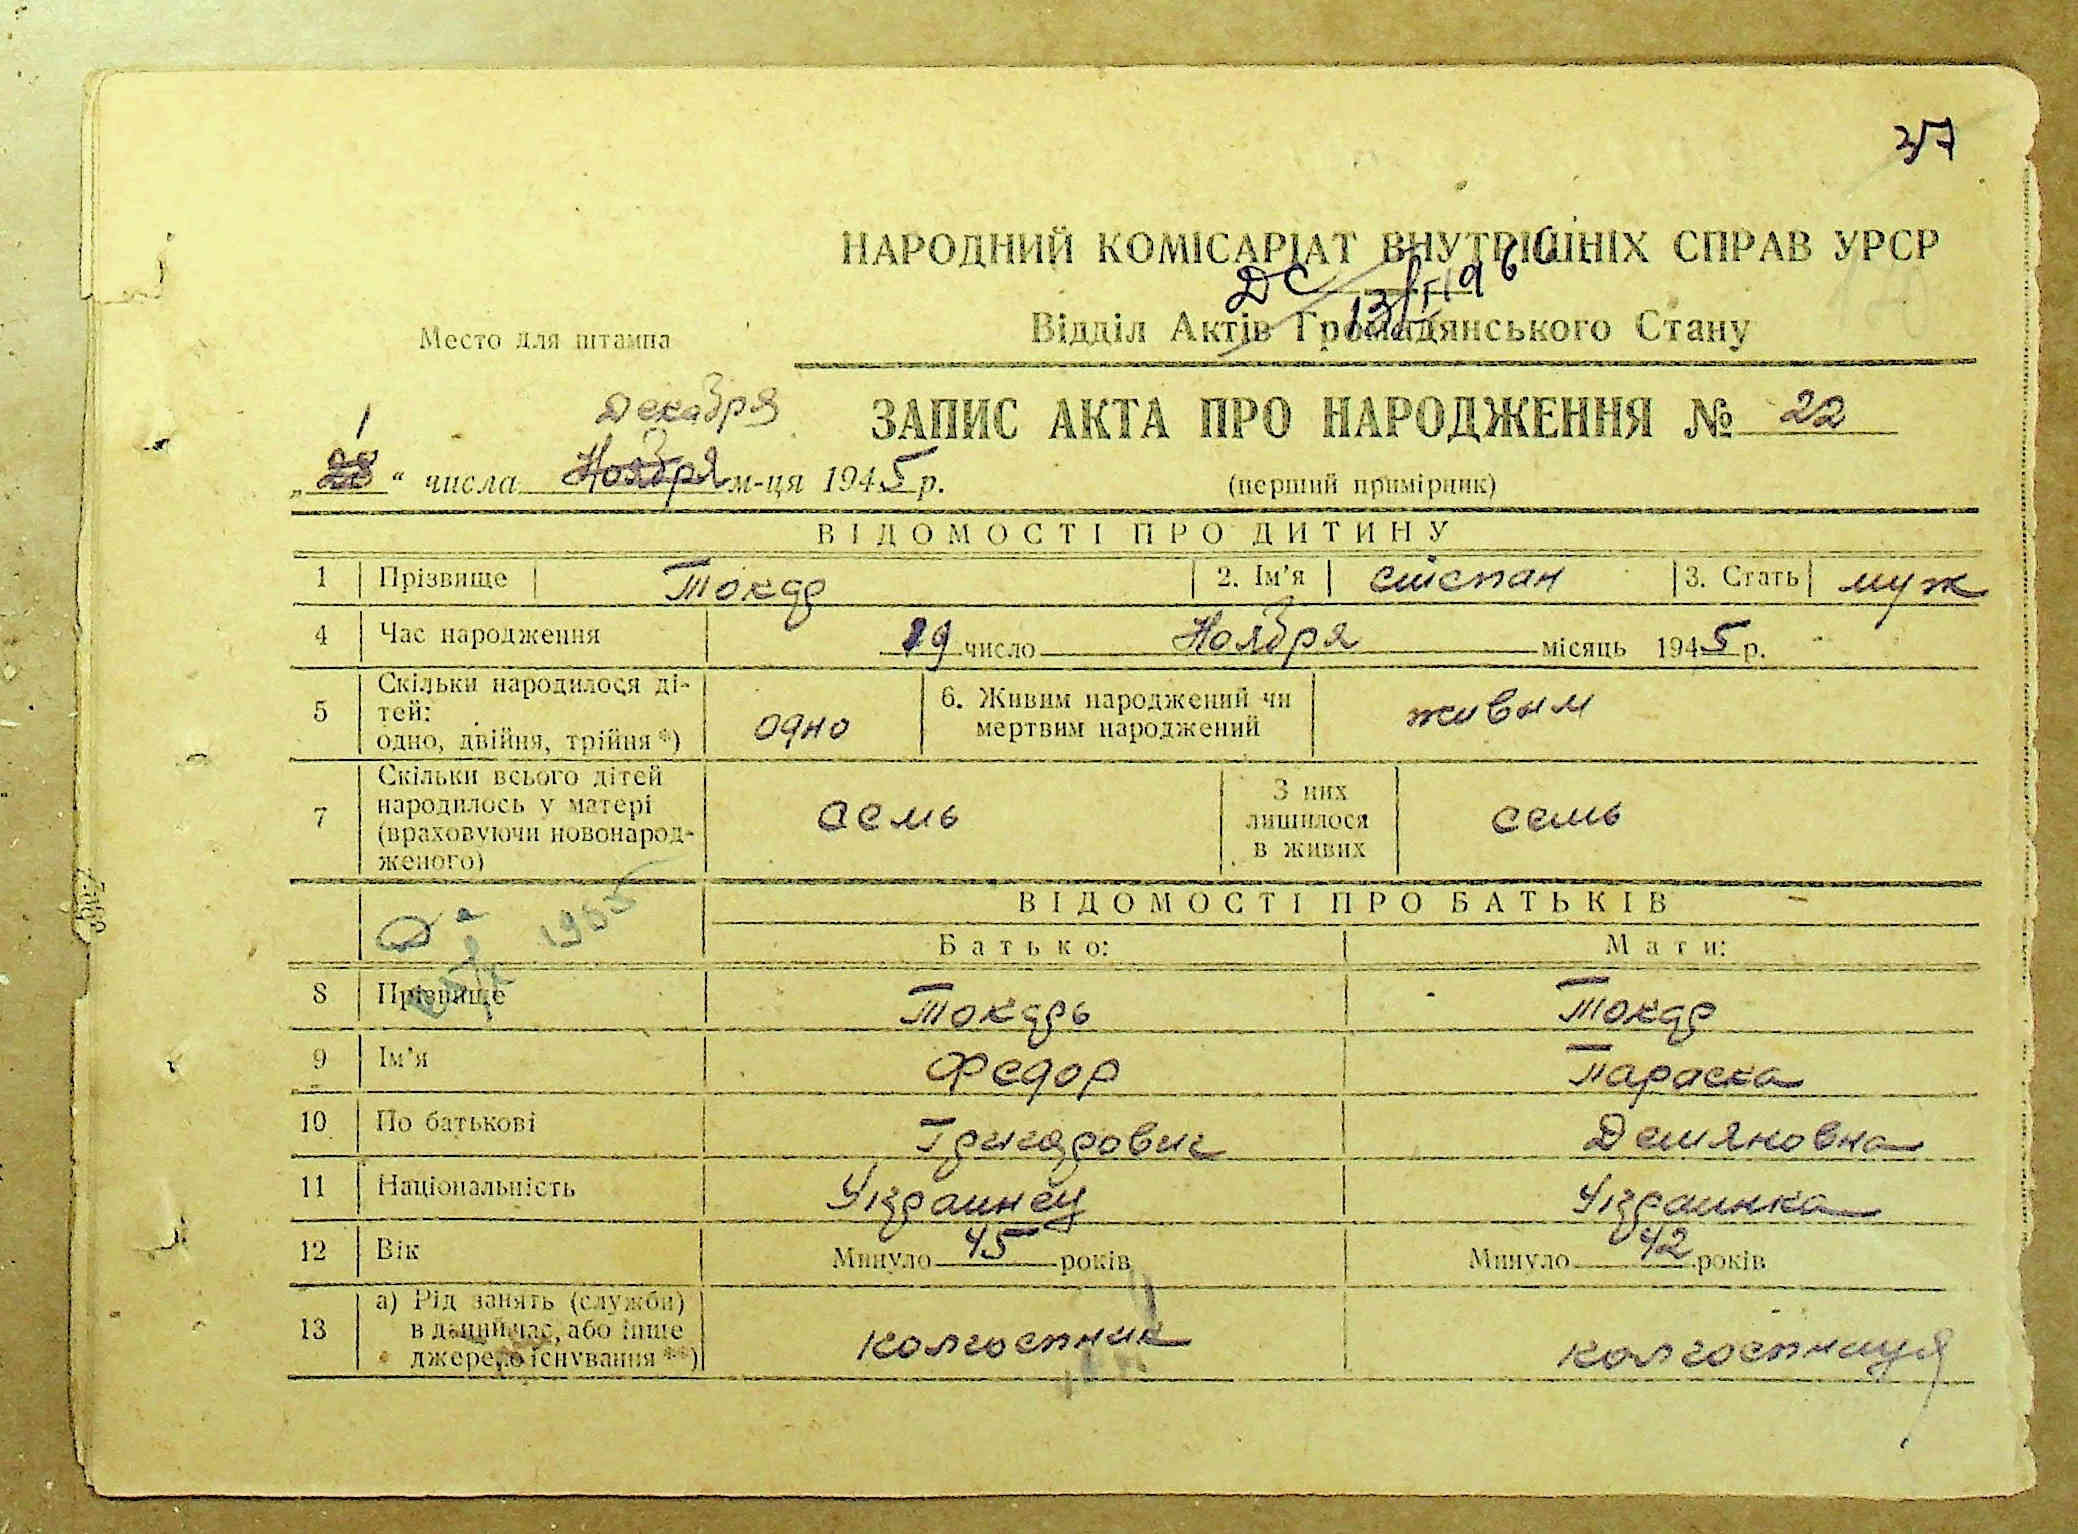 37
НАРОДНИЙ КОМІСАРІАТ ВНУТРІШНІХ СПРАВ УРСР
ДС
Відділ Актів Громадянського Стану
Место для штампа
ЗАПИС АКТА ПРО НАРОДЖЕННЯ № 22
1 Декабря
„28“ числа Ноября м-ця 1945 р.
(перший примірник)
ВІДОМОСТІ ПРО ДИТИНУ
1 Прізвище Токар 2. Ім’я Степан 3. Стать муж
4 Час народження 19 число Ноября місяць 1945 р.
5 Скільки народилося ді-
тей:
одно, двійня, трійня *) одно
6. Живим народжений чи
мертвим народжений живым
7 Скільки всього дітей
народилось у матері
(враховуючи новонарод-
женого) семь
З них
лишилося
в живих семь
1955
ВІДОМОСТІ ПРО БАТЬКІВ
Батько: Мати:
8 Прізвище Токарь Токар
9 Ім’я Федор Параска
10 По батькові Григорович Демяновна
11 Національність Украинец Украинка
12 Вік Минуло 45 років Минуло 42 років
13 а) Рід занять (служби)
в даний час, або інше
джерело існування **) колгоспник колгоспниця